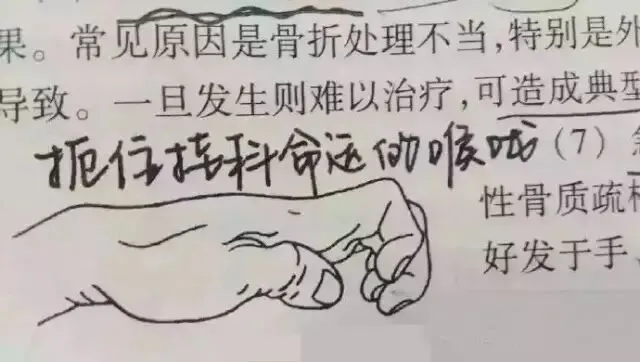 果。常见原因是骨折处理不当,特别是外
导致。一旦发生则难以治疗,可造成典型
扼住挂科命运的喉咙
(7)
性骨质疏
好发于手、